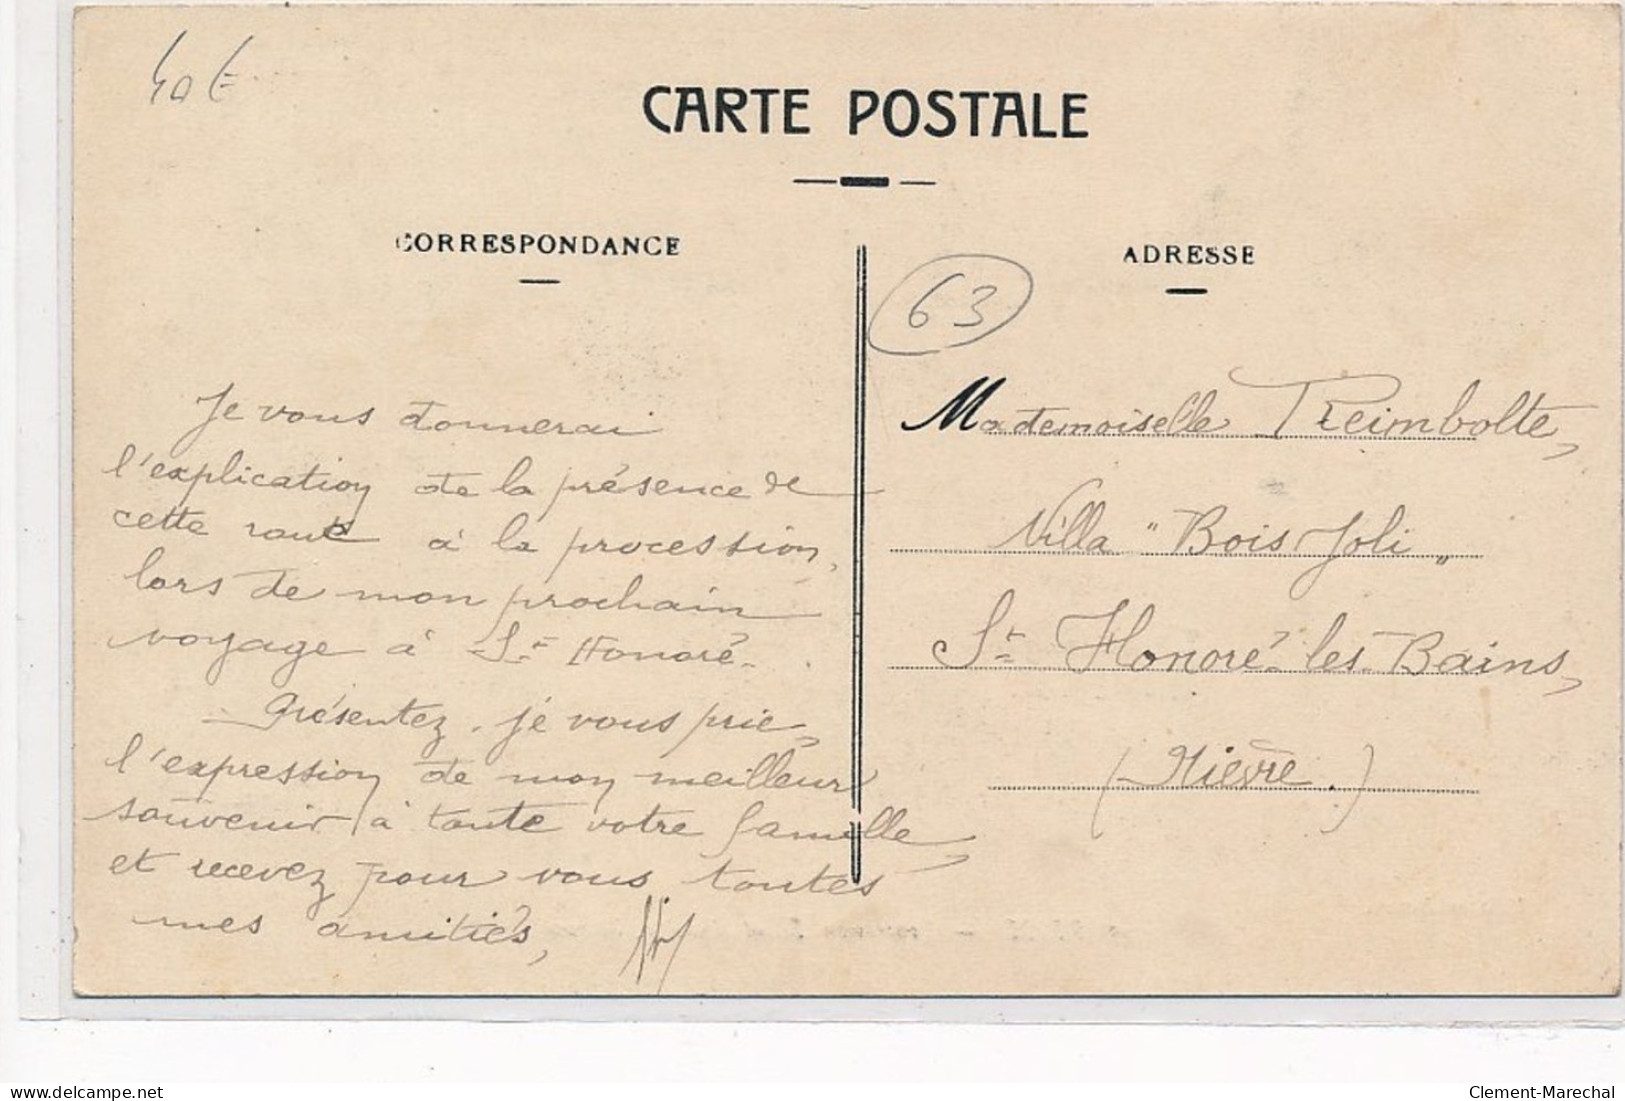 40 €
CARTE POSTALE
CORRESPONDANCE
ADRESSE
63
Je vous donnerai
l'explication de la présence de
cette route à la procession,
lors de mon prochain
voyage à St Honoré.
Présentez, je vous prie,
l'expression de mon meilleur
souvenir à toute votre famille,
et recevez pour vous toutes
mes amitiés,
Mademoiselle Treimbolte,
Villa "Bois Joli"
St Honoré-les-Bains,
(Nièvre.)
delcampe.net
Clement-Marechal